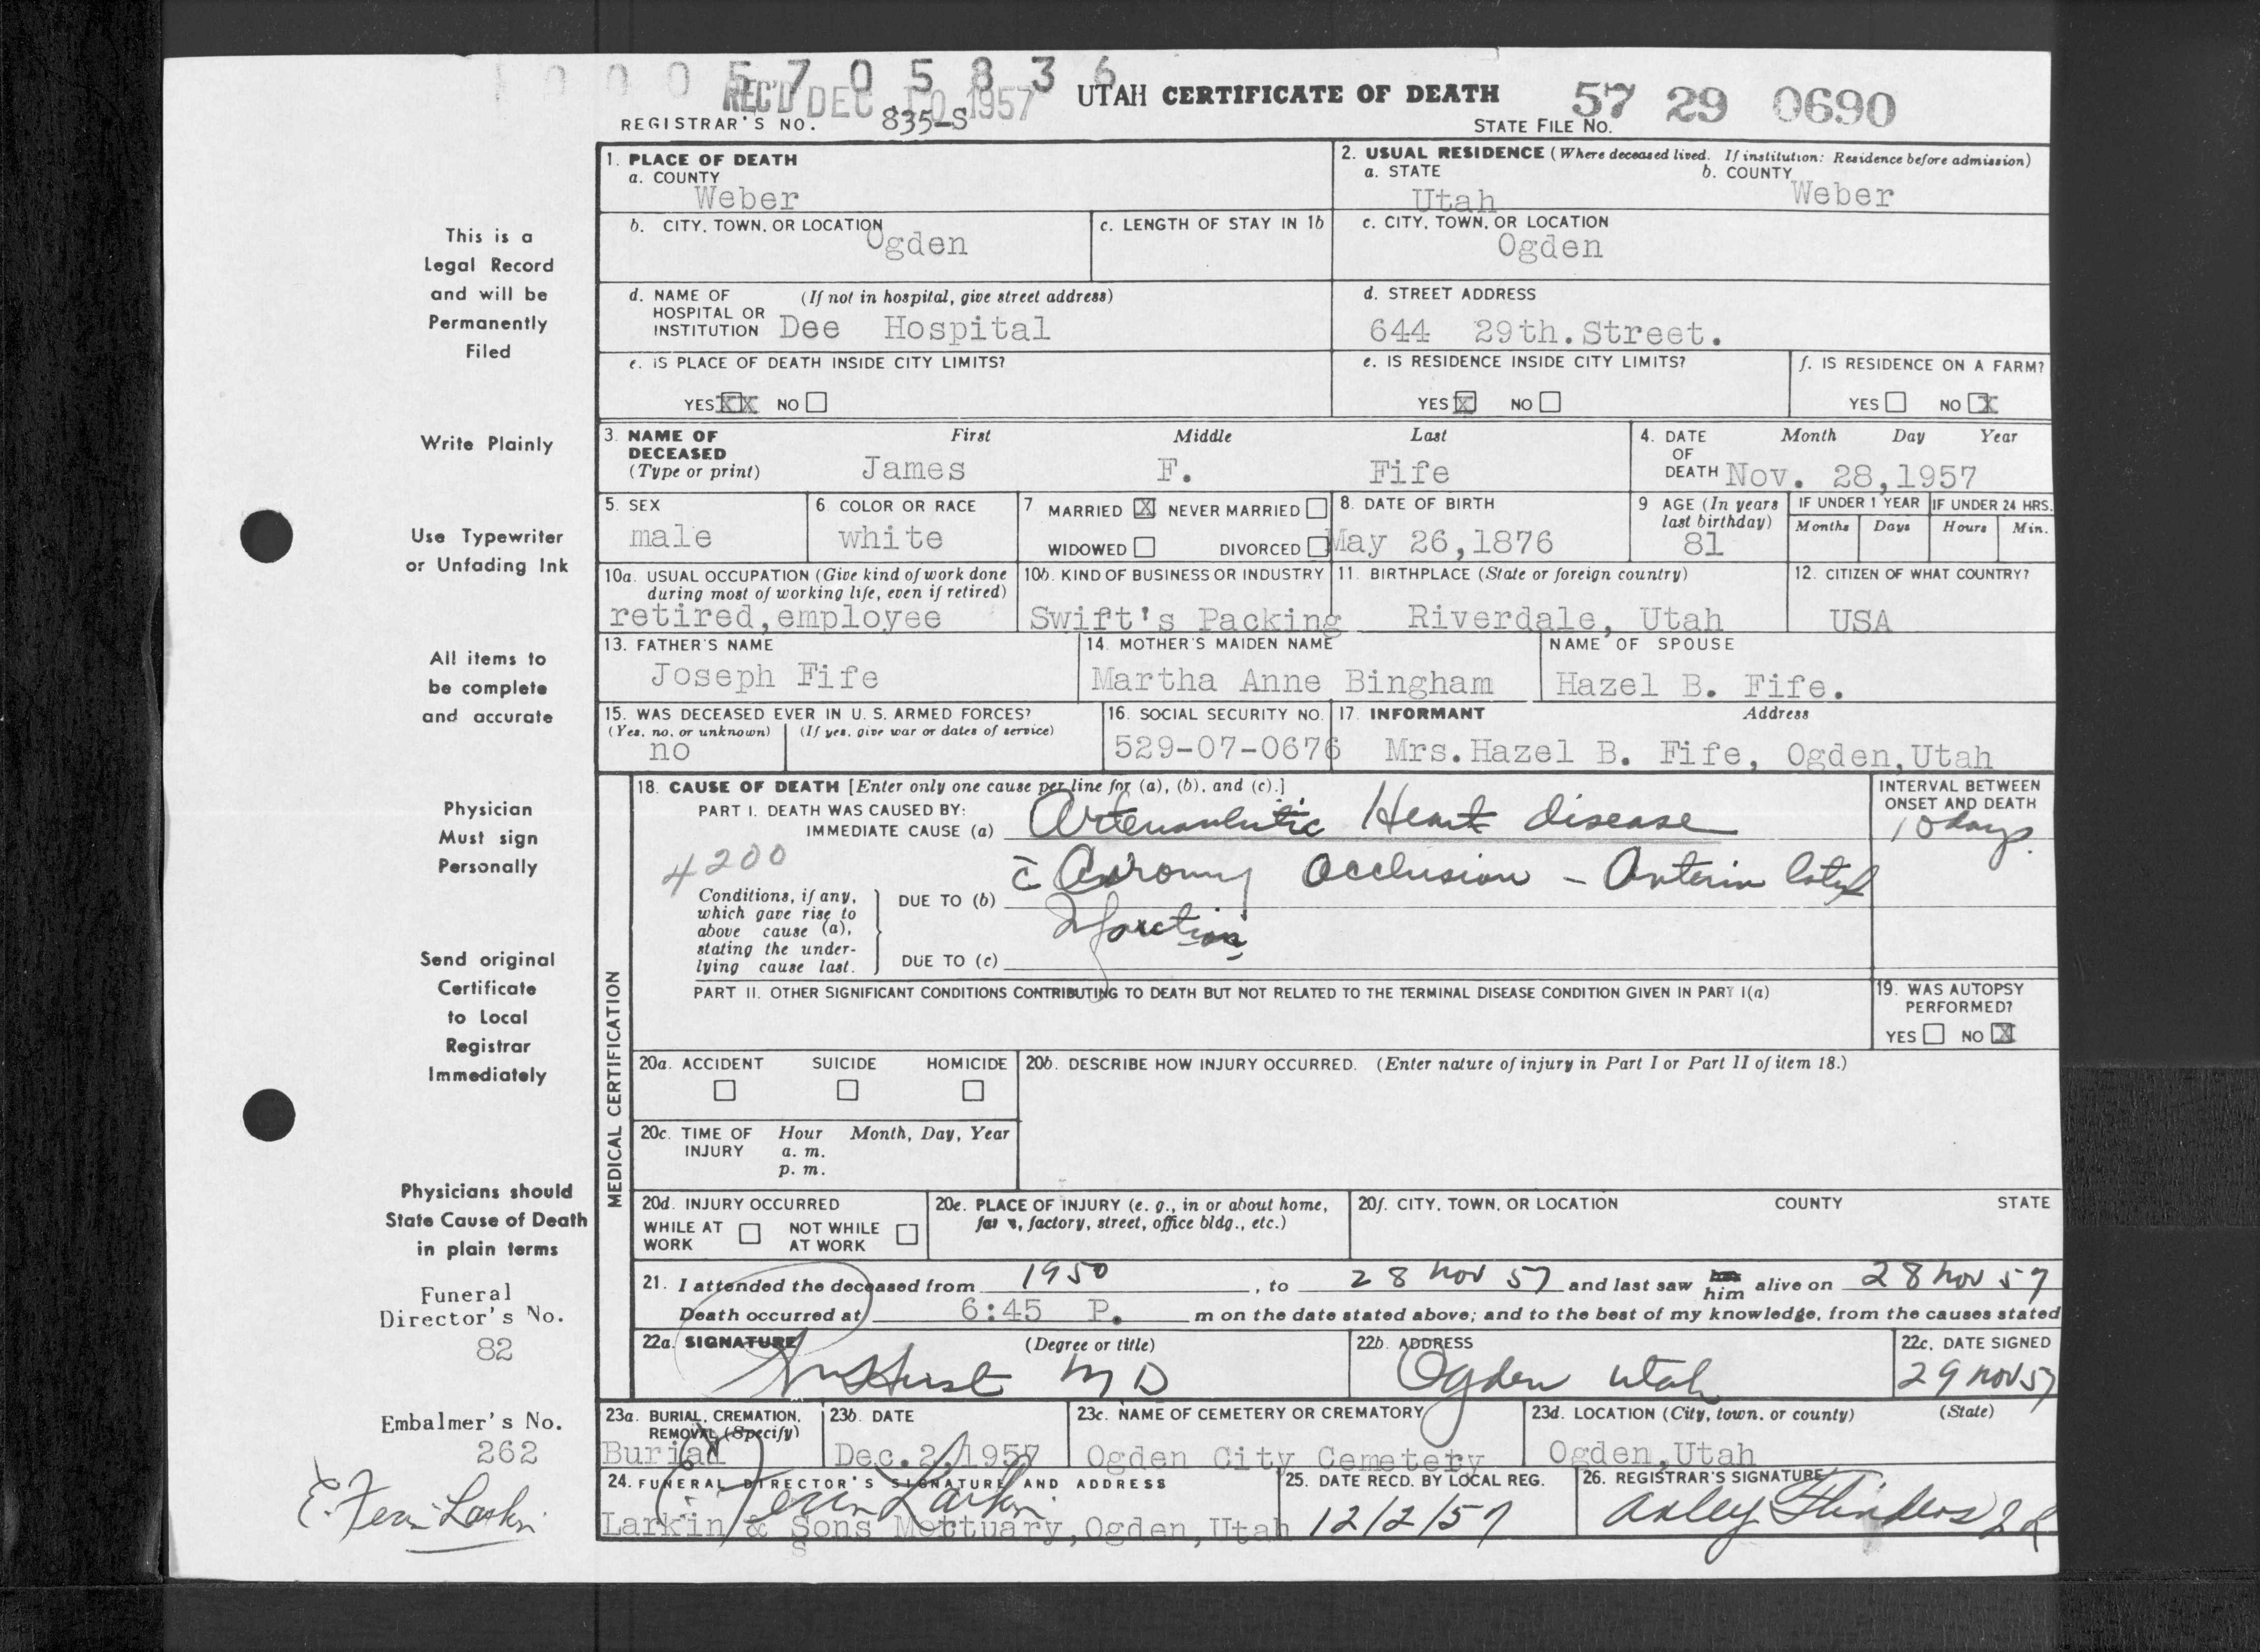 10005705836
REC'D DEC 10 1957
UTAH CERTIFICATE OF DEATH
57 29 0690
REGISTRAR'S NO. 835-S
STATE FILE NO.
This is a
Legal Record
and will be
Permanently
Filed
Write Plainly
Use Typewriter
or Unfading Ink
All items to
be complete
and accurate
Physician
Must sign
Personally
Send original
Certificate
to Local
Registrar
Immediately
Physicians should
State Cause of Death
in plain terms
Funeral
Director's No.
82
Embalmer's No.
262
E. Fern Larkin
1. PLACE OF DEATH
a. COUNTY
Weber
2. USUAL RESIDENCE (Where deceased lived. If institution: Residence before admission)
a. STATE b. COUNTY
Utah Weber
b. CITY, TOWN, OR LOCATION
Ogden
c. LENGTH OF STAY IN 1b
c. CITY, TOWN, OR LOCATION
Ogden
d. NAME OF (If not in hospital, give street address)
HOSPITAL OR
INSTITUTION Dee Hospital
d. STREET ADDRESS
644 29th. Street.
e. IS PLACE OF DEATH INSIDE CITY LIMITS?
YES XX NO
e. IS RESIDENCE INSIDE CITY LIMITS?
YES X NO
f. IS RESIDENCE ON A FARM?
YES NO X
3. NAME OF First Middle Last
DECEASED
(Type or print) James F. Fife
4. DATE Month Day Year
OF
DEATH Nov. 28,1957
5. SEX
male
6. COLOR OR RACE
white
7 MARRIED X NEVER MARRIED
WIDOWED DIVORCED
8. DATE OF BIRTH
May 26,1876
9 AGE (In years
last birthday)
81
IF UNDER 1 YEAR
Months Days
IF UNDER 24 HRS.
Hours Min.
10a. USUAL OCCUPATION (Give kind of work done
during most of working life, even if retired)
retired,employee
10b. KIND OF BUSINESS OR INDUSTRY
Swift's Packing
11. BIRTHPLACE (State or foreign country)
Riverdale, Utah
12. CITIZEN OF WHAT COUNTRY?
USA
13. FATHER'S NAME
Joseph Fife
14. MOTHER'S MAIDEN NAME
Martha Anne Bingham
NAME OF SPOUSE
Hazel B. Fife.
15. WAS DECEASED EVER IN U. S. ARMED FORCES?
(Yes, no, or unknown) (If yes, give war or dates of service)
no
16. SOCIAL SECURITY NO.
529-07-0676
17. INFORMANT Address
Mrs.Hazel B. Fife, Ogden,Utah
MEDICAL CERTIFICATION
18. CAUSE OF DEATH [Enter only one cause per line for (a), (b), and (c).]
PART I. DEATH WAS CAUSED BY:
IMMEDIATE CAUSE (a) Heart disease
INTERVAL BETWEEN
ONSET AND DEATH
10 days
4200
Conditions, if any,
which gave rise to
above cause (a),
stating the under-
lying cause last.
DUE TO (b) c̄ Coronary Occlusion - Anterior lateral
Infarction
DUE TO (c)
PART II. OTHER SIGNIFICANT CONDITIONS CONTRIBUTING TO DEATH BUT NOT RELATED TO THE TERMINAL DISEASE CONDITION GIVEN IN PART I(a)
19. WAS AUTOPSY
PERFORMED?
YES NO X
20a. ACCIDENT SUICIDE HOMICIDE
20b. DESCRIBE HOW INJURY OCCURRED. (Enter nature of injury in Part I or Part II of item 18.)
20c. TIME OF Hour Month, Day, Year
INJURY a. m.
p. m.
20d. INJURY OCCURRED
WHILE AT NOT WHILE
WORK AT WORK
20e. PLACE OF INJURY (e. g., in or about home,
factory, street, office bldg., etc.)
20f. CITY, TOWN, OR LOCATION COUNTY STATE
21. I attended the deceased from 1950, to 28 Nov 57 and last saw him alive on 28 Nov 57
Death occurred at 6:45 P. m on the date stated above; and to the best of my knowledge, from the causes stated
22a. SIGNATURE (Degree or title)
Hurst MD
22b. ADDRESS
Ogden Utah
22c. DATE SIGNED
29 Nov 57
23a. BURIAL, CREMATION,
REMOVAL (Specify)
Burial
23b. DATE
Dec.2,1957
23c. NAME OF CEMETERY OR CREMATORY
Ogden City Cemetery
23d. LOCATION (City, town, or county) (State)
Ogden,Utah
24. FUNERAL DIRECTOR'S SIGNATURE AND ADDRESS
Fern Larkin
Larkin & Sons Mortuary,Ogden,Utah
25. DATE RECD. BY LOCAL REG.
12/2/57
26. REGISTRAR'S SIGNATURE
Axley Flinders